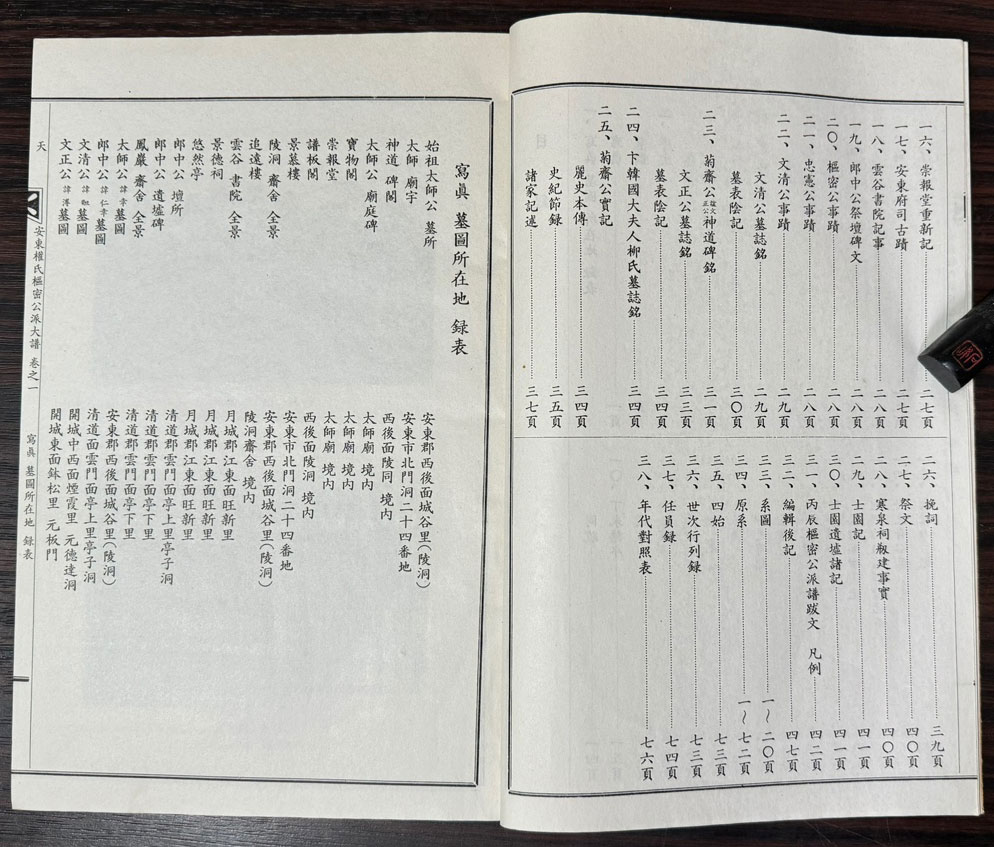 一六、崇報堂重新記 二七頁
一七、安東府司古蹟 二七頁
一八、雲谷書院記事 二八頁
一九、郎中公祭壇碑文 二八頁
二〇、樞密公事蹟 二八頁
二一、忠憲公事蹟 二八頁
二二、文清公事蹟 二九頁
文清公墓誌銘 二九頁
墓表陰記 三〇頁
二三、菊齋公諡文正公神道碑銘 三一頁
文正公墓誌銘 三三頁
墓表陰記 三四頁
二四、卞韓國大夫人柳氏墓誌銘 三四頁
二五、菊齋公實記
麗史本傳 三四頁
史紀節録 三五頁
諸家記述 三七頁
二六、挽詞 三九頁
二七、祭文 四〇頁
二八、寒泉祠剏建事實 四〇頁
二九、士園記 四一頁
三〇、士園遺墟諸記 四一頁
三一、丙辰樞密公派譜跋文 凡例 四二頁
三二、編輯後記 四七頁
三三、系圖 一~二〇頁
三四、原系 一~七二頁
三五、四始 七三頁
三六、世次行列録 七三頁
三七、任員録 七四頁
三八、年代對照表 七六頁
寫眞 墓圖所在地 録表
始祖太師公 墓所 安東郡西後面城谷里(陵洞)
太師 廟宇 安東市北門洞二十四番地
神道 碑閣 西後面陵同 境内
太師公 廟庭碑 太師廟 境内
寶物閣 太師廟 境内
崇報堂 太師廟 境内
譜板閣 西後面陵洞 境内
景慕樓 安東市北門洞二十四番地
陵洞 齋舍 全景 安東郡西後面城谷里(陵洞)
追遠樓 陵洞齋舍 境内
雲谷 書院 全景 月城郡江東面旺新里
景德祠 月城郡江東面旺新里
悠然亭 月城郡江東面旺新里
郎中公 壇所 清道郡雲門面亭上里亭子洞
郎中公 遺墟碑 清道郡雲門面亭下里
鳳巖 齋舍 全景 清道郡雲門面亭下里
太師公 諱幸墓圖 安東郡西後面城谷里(陵洞)
郎中公 諱仁幸墓圖 清道面雲門面亭上里亭子洞
文清公 諱 墓圖 開城中西面煙霞里 元德達洞
文正公 諱溥墓圖 開城東面鉢松里 元板門
天 安東權氏樞密公派大譜 卷之一 寫眞 墓圖所在地 録表